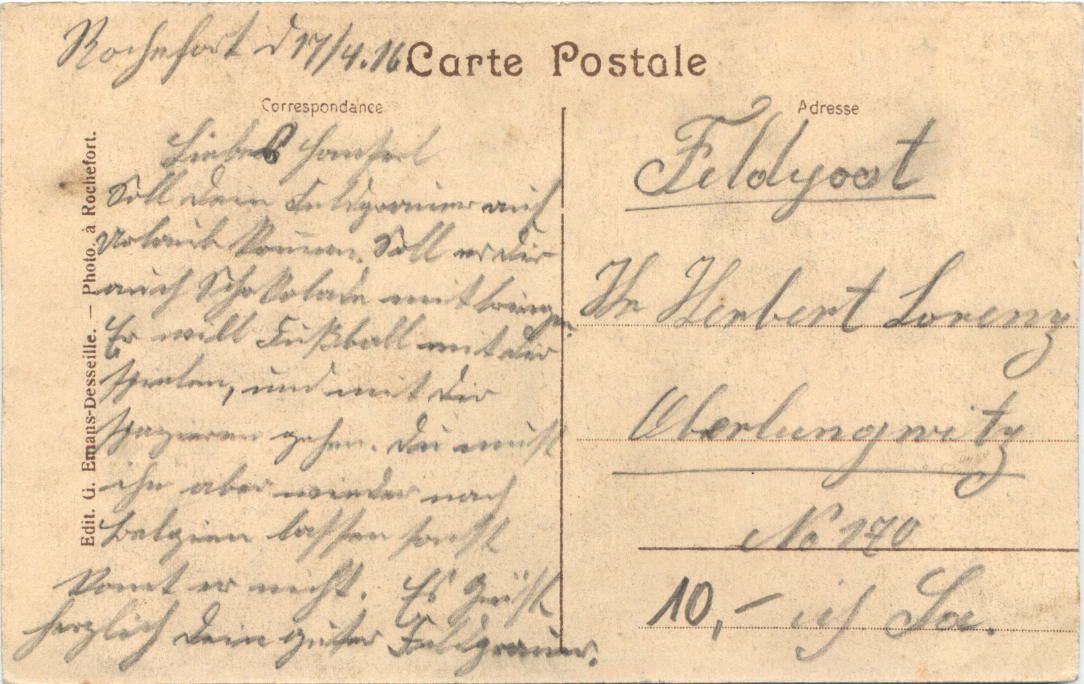 Rochefort d 17/4.16.
Carte Postale
Correspondance
Adresse
Edit. G. Emans-Desseille. — Photo. à Rochefort.
Liebes Hansel
Soll dein Feldgrauer auf
Urlaub kommen. Soll er dir
auch Schokolade mitbringen.
Er will Fußball mit dir
spielen, und mit dir
spazieren gehen. Du mußt
ihn aber wieder nach
Belgien lassen sonst
komt er nicht. Es Grüßt
herzlich dein guter Feldgrauer.
Feldpost
Hr Herbert Lorenz
Oberlungwitz
No 170
10,- i/ Sa.